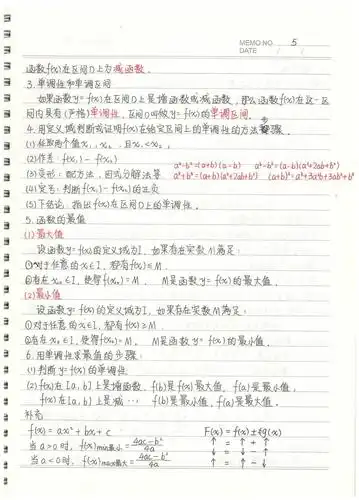 MEMO NO. 5
DATE / /
函数f(x)在区间D上为减函数.
3.单调性和单调区间
如果函数y=f(x)在区间D上是增函数或减函数,那么函数f(x)在这一区
间内具有(严格)单调性,区间D叫做y=f(x)的单调区间.
4.用定义域判断或证明f(x)在给定区间上的单调性的方法步骤.
(1)任取两个值x₁,x₂,且x₁<x₂,
(2)作差:f(x₁)-f(x₂)
a²-b²=(a+b)(a-b) a³-b³=(a-b)(a²+2ab+b²)
(3)变形:配方法,因式分解法等
a³+b³=(a+b)(a²+2ab+b²) (a+b)³=a³+3a²b+3ab²+b³
(4)定号:判断f(x₁)-f(x₂)的正负
(5)下结论:指出f(x)在区间D上的单调性.
5.函数的最值
(1)最大值
设函数y=f(x)的定义域为I,如果存在实数M满足:
①对于任意的x∈I,都有f(x)≤M.
②存在x₀∈I,使得f(x₀)=M, M是函数y=f(x)的最大值.
(2)最小值
设函数y=f(x)的定义域为I,如果存在实数M满足:
①对于任意的x∈I,都有f(x)≥M
②存在x₀∈I,使得f(x₀)=M, M是函数y=f(x)的最小值.
6.用单调性求最值的步骤:
(1)判断y=f(x)的单调性
(2)f(x)在[a,b]上是增函数,f(b)是f(x)最大值,f(a)是最小值,
f(x)在[a,b]上是减… f(b)是最小值,f(a)是最大值.
补充
f(x)=ax²+bx+c F(x)=f(x)±g(x)
当a>0时,f(x)min最小=4ac-b²/4a ↑ = ↑ + ↑
↓ = ↓ - ↑
当a<0时,f(x)max最大=4ac-b²/4a ↑ = ↑ - ↓